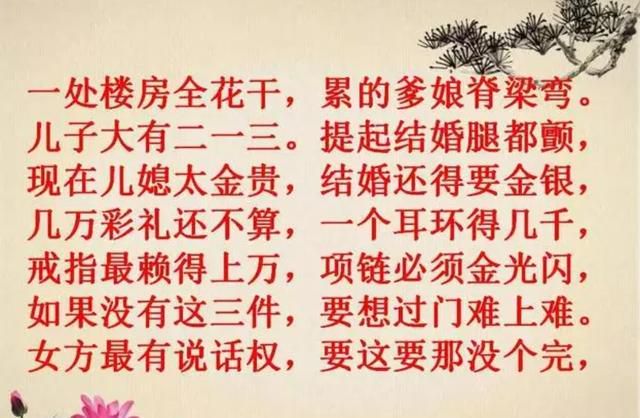 一处楼房全花干，累的爹娘脊梁弯。
儿子大有二一三。提起结婚腿都颤，
现在儿媳太金贵，结婚还得要金银，
几万彩礼还不算，一个耳环得几千，
戒指最赖得上万，项链必须金光闪，
如果没有这三件，要想过门难上难。
女方最有说话权，要这要那没个完，